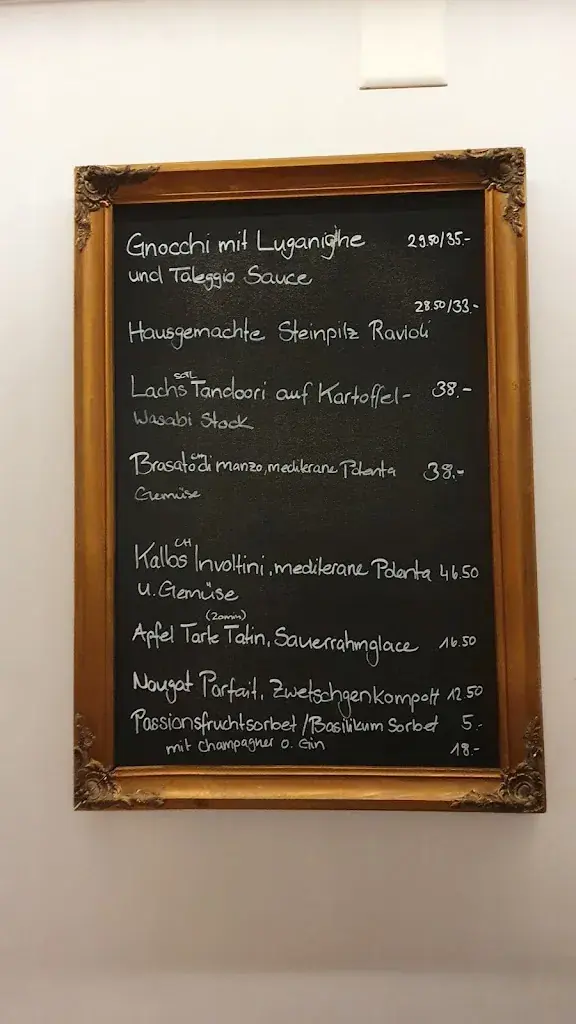 Gnocchi mit Luganighe 29.50/35.-
und Taleggio Sauce
28.50/33.-
Hausgemachte Steinpilz Ravioli
Lachs SCTL Tandoori auf Kartoffel- 38.-
Wasabi Stock
Brasato CH di manzo, mediterane Polenta 38.-
Gemüse
Kalbs CH Involtini, mediterane Polenta 46.50
u. Gemüse
(20min)
Apfel Tarte Tatin, Sauerrahmglace 16.50
Nougat Parfait, Zwetschgenkompott 12.50
Passionsfruchtsorbet/Basilikum Sorbet 5.-
mit Champagner o. Gin 18.-